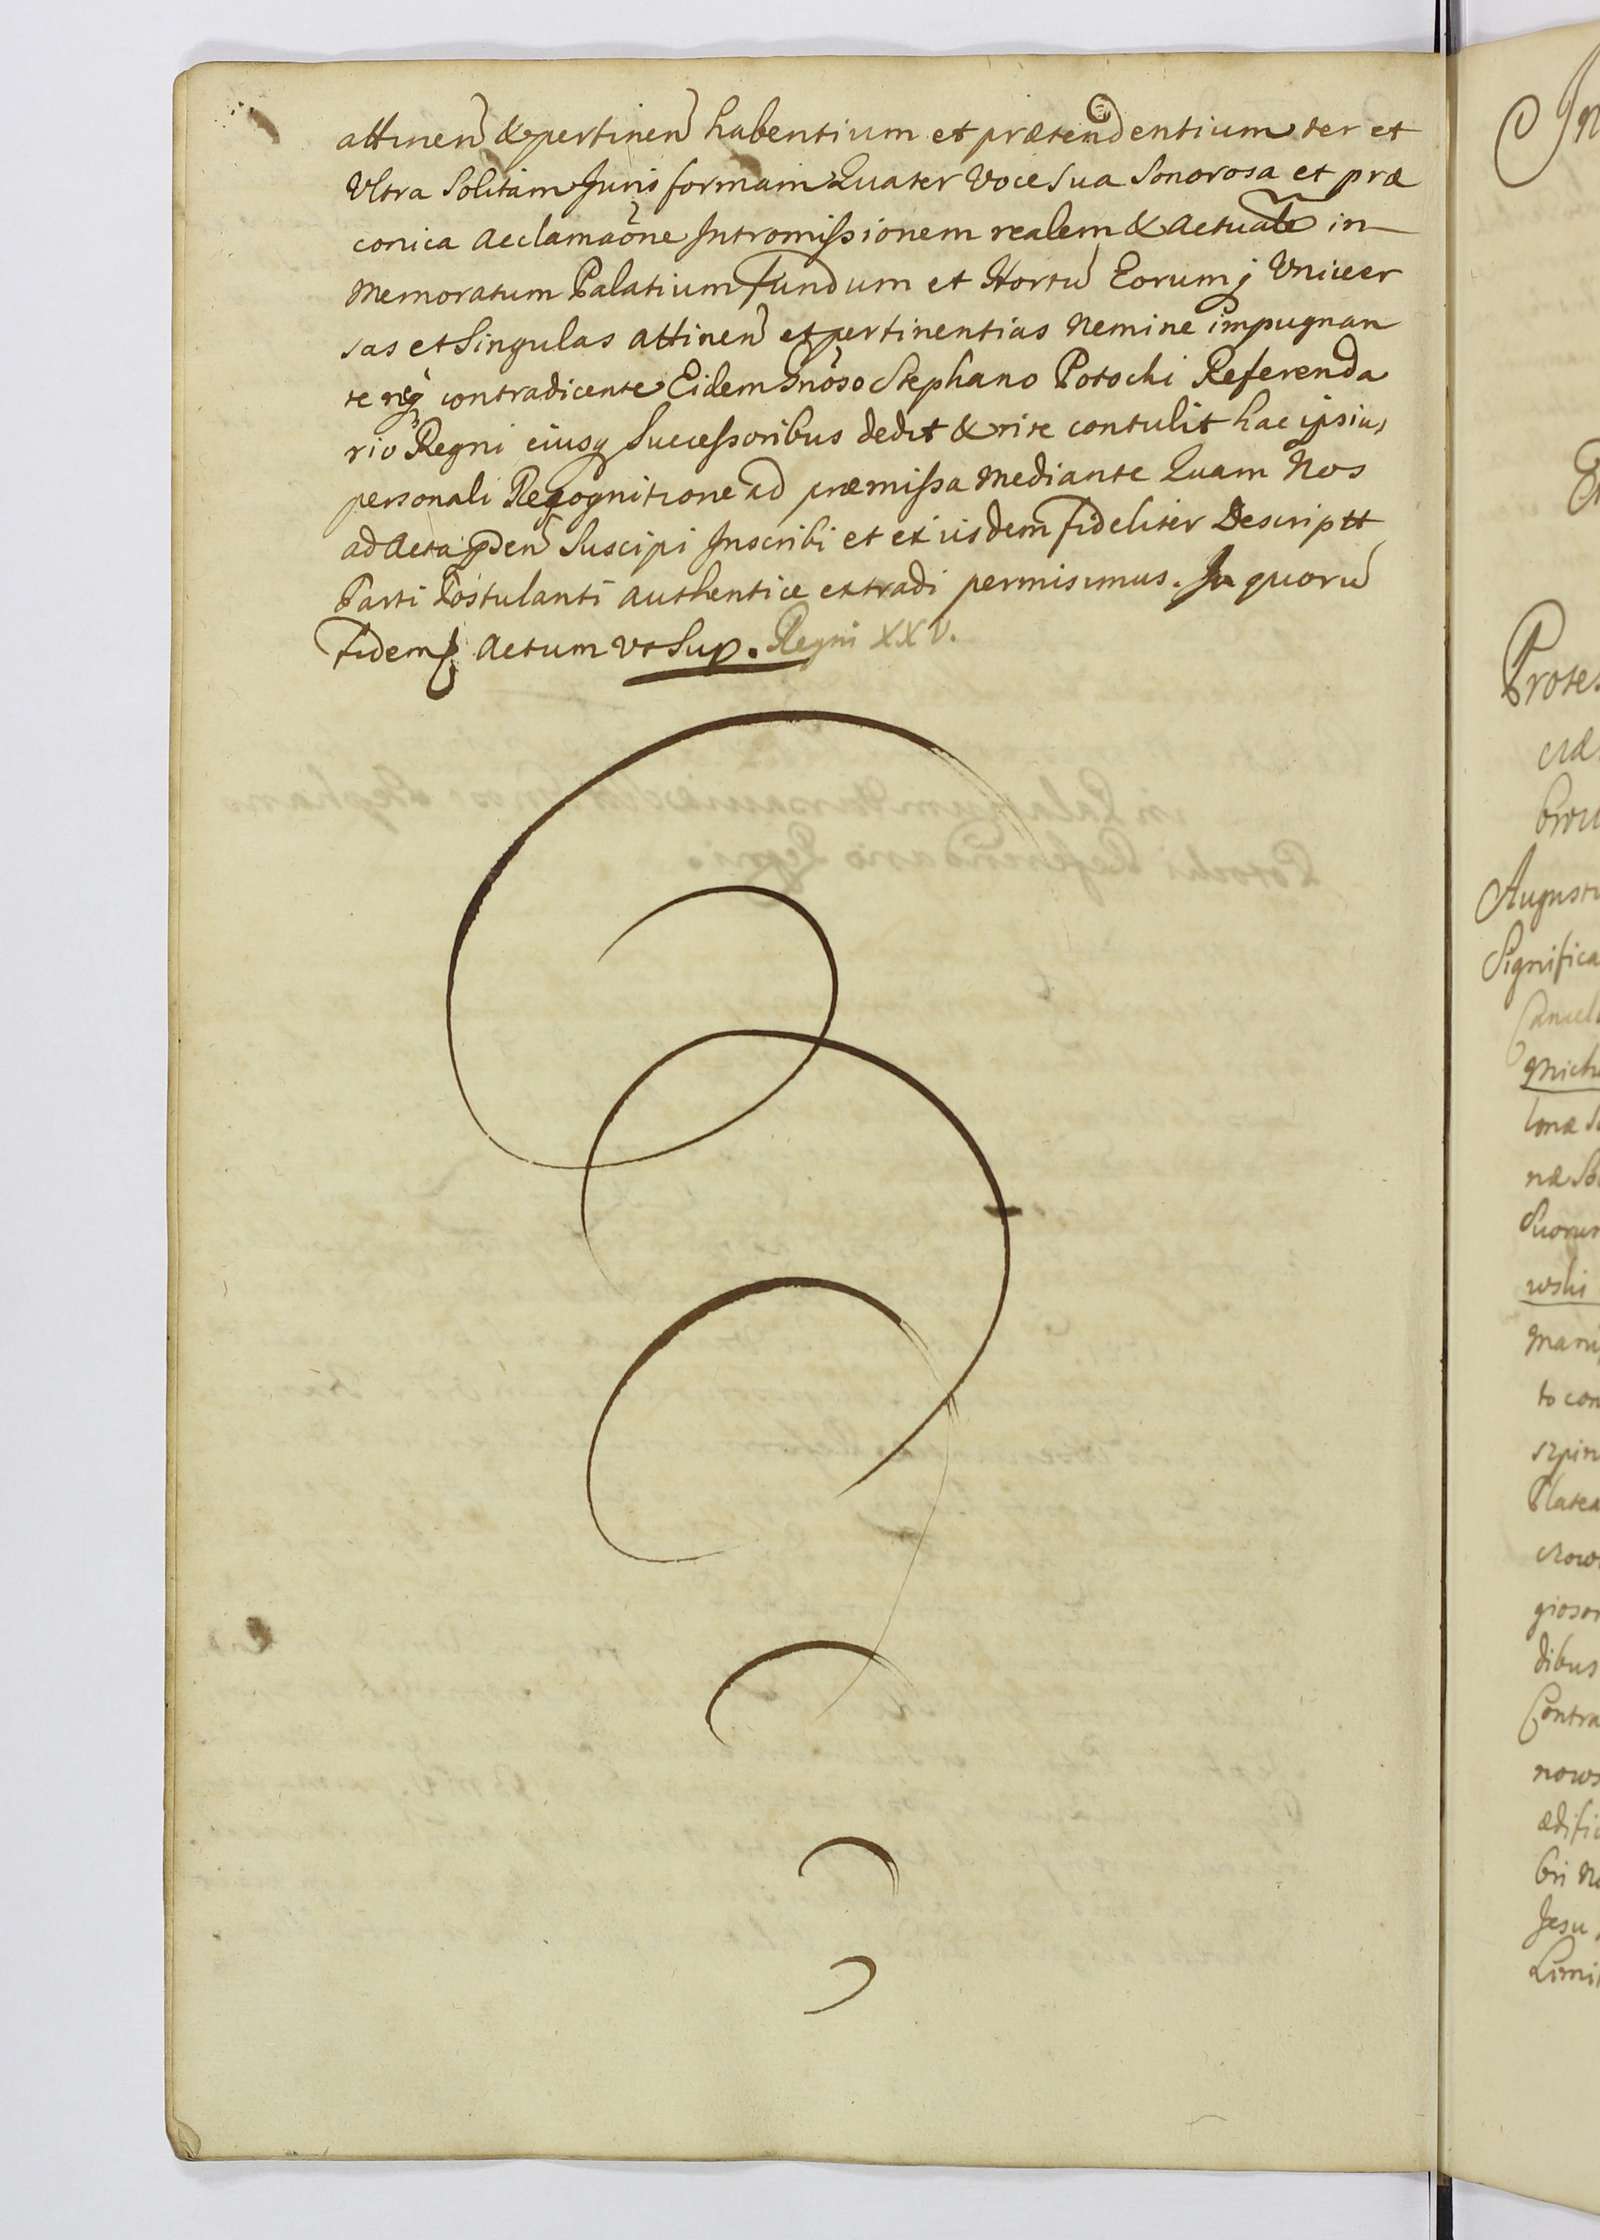 attinen &pertinen habentium et prætendentium ter et
Ultra Solitam Juris formam Quater Voce Sua Sonorosa et præ
conica Acclamaône Intromissionem realem & Actuale in
Memoratum Palatium Fundum et Hortũ Eorumq Univer
sas et Singulas attinen et pertinentias Nemine impugnan
te neq contradicente Eidem Gnôso Stephano Potocki Referenda
rio Regni eiusq Successoribus dedit & rite contulit hac ipsius
personali Recognitione ad præmissa Mediante Quam Nos
ad Acta pden Suscipi Inscribi et ex iisdem Fideliter Descriptt
Parti Postulanti authentice extradi permisimus. In quorũ
Fidem Actum Vt Sup. Regni XXV.
In
Protes
Augustu
Significa
Cancel
lonæ
Suorum
wski
to con
Platea
dibus
Contra
nows
ædific
Jesu
Limi